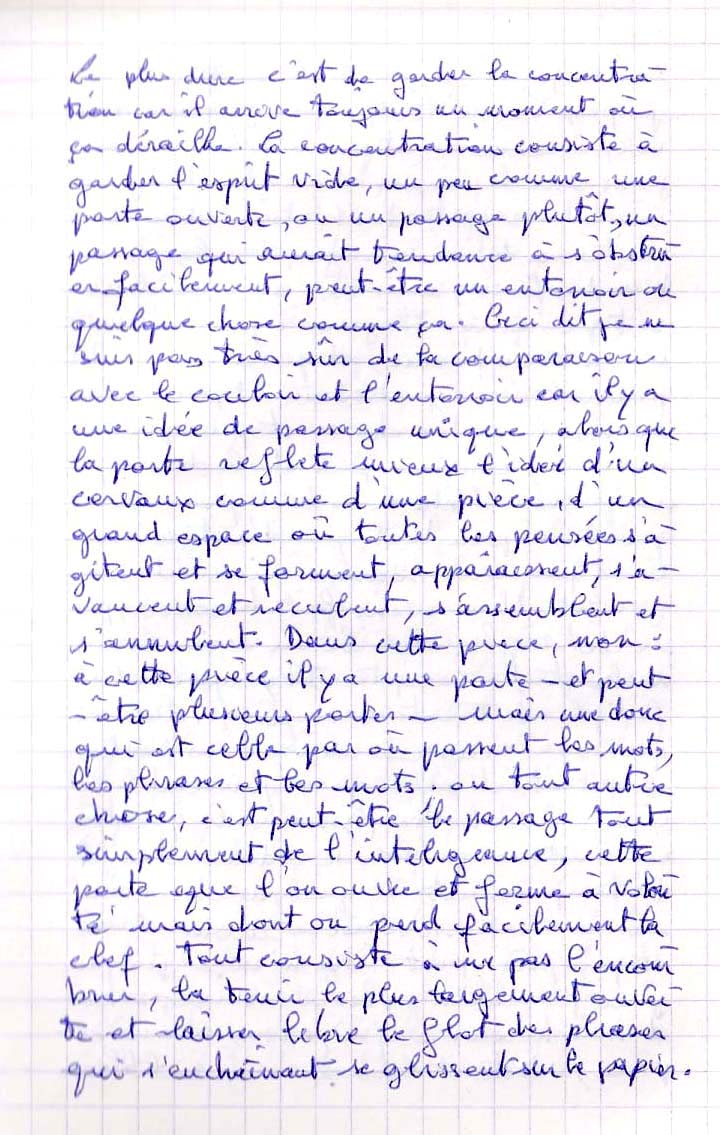 Le plus dure c'est de garder la concentra-
tion car il arrive toujours un moment où
ça déraille. La concentration consiste à
garder l'esprit vide, un peu comme une
porte ouverte, ou un passage plutôt, un
passage qui aurait tendance à s'obstru-
er facilement, peut-être un entonnoir ou
quelque chose comme ça. Ceci dit je ne
suis pas très sûr de la comparaison
avec le couloir et l'entonoir car il y a
une idée de passage unique, alors que
la porte reflete mieux l'idée d'un
cerveaux comme d'une pièce, d'un
grand espace où toutes les pensées s'a-
gitent et se forment, apparaissent, s'a-
vancent et reculent, s'assemblent et
s'annulent. Dans cette pièce, non :
à cette pièce il y a une porte – et peut
-être plusieurs portes – mais une donc
qui est celle par où passent les mots,
les phrases et les mots, ou tout autre
chose, c'est peut-être le passage tout
simplement de l'inteligeance, cette
porte que l'on ouvre et ferme à volon
té mais dont on perd facilement la
clef. Tout consiste à ne pas l'encom
brer, la tenir le plus largement ouver
te et laisser libre le flot des phrases
qui s'enchaînant se glissent sur le papier.